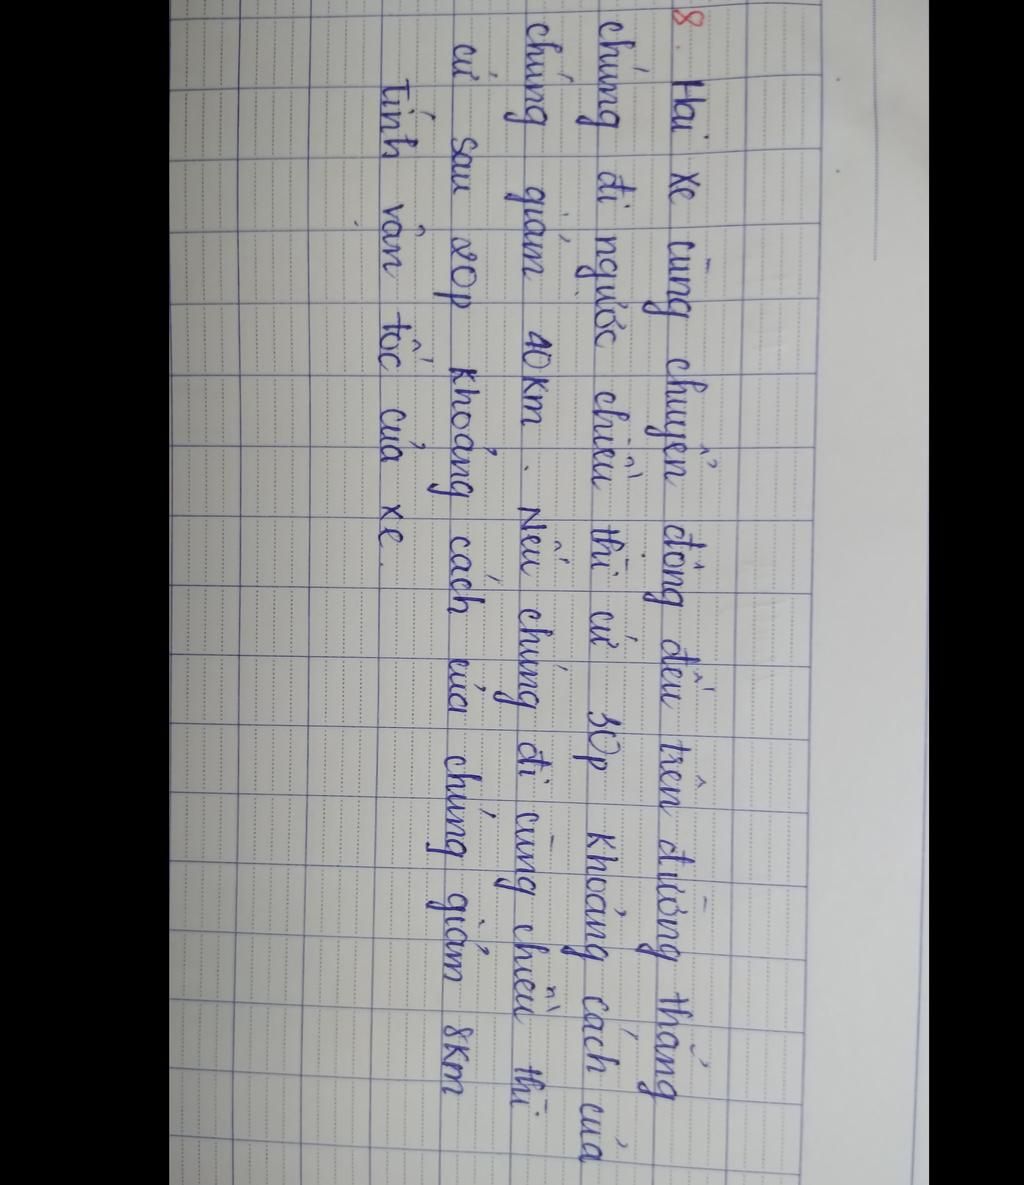 8. Hai xe cùng chuyển động đều trên đường thẳng
chúng đi ngược chiều thì cứ 30p khoảng cách của
chúng giảm 40km. Nếu chúng đi cùng chiều thì
cứ sau 20p khoảng cách của chúng giảm 8km
Tính vận tốc của xe.